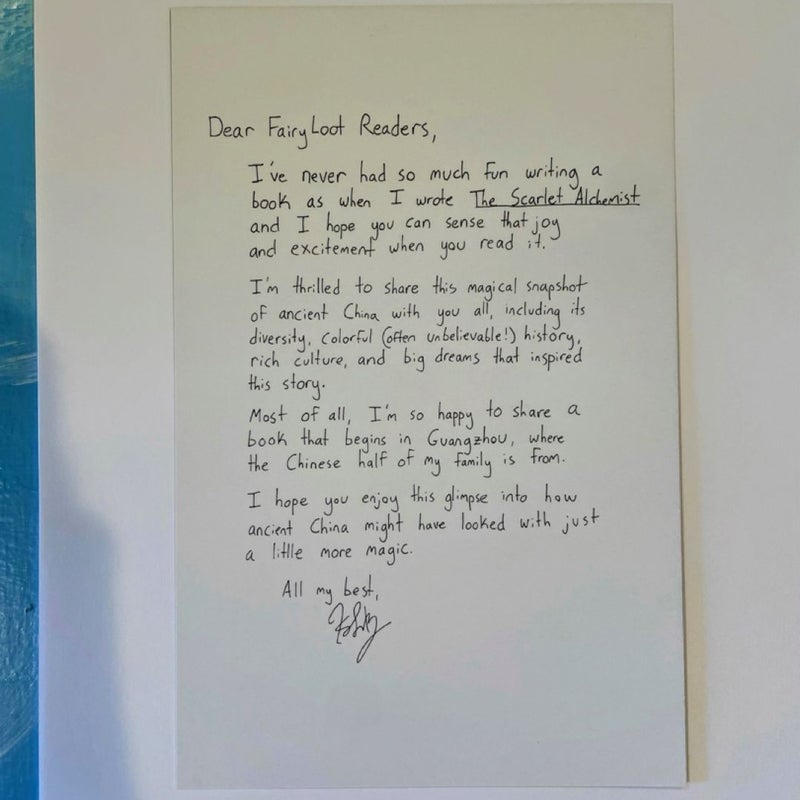 Dear FairyLoot Readers,
I've never had so much fun writing a
book as when I wrote The Scarlet Alchemist
and I hope you can sense that joy
and excitement when you read it.
I'm thrilled to share this magical snapshot
of ancient China with you all, including its
diversity, colorful (often unbelievable!) history,
rich culture, and big dreams that inspired
this story.
Most of all, I'm so happy to share a
book that begins in Guangzhou, where
the Chinese half of my family is from.
I hope you enjoy this glimpse into how
ancient China might have looked with just
a little more magic.
All my best,